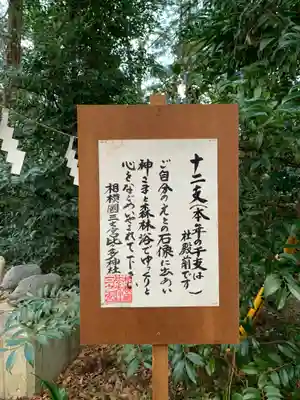 十二支（本年の干支は
社殿前です）
ご自分のえとの石像に出あい
神さまと森林浴でゆっくりと
心をなごめいやされて下さい
相模國三之宮比々多神社